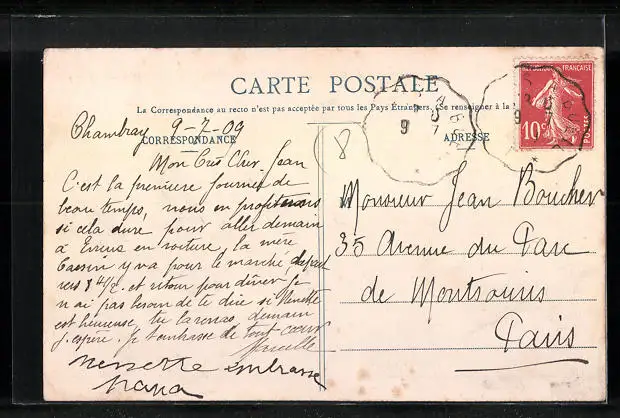 CARTE POSTALE
La Correspondance au recto n'est pas acceptée par tous les Pays Étrangers. (Se renseigner à la
CORRESPONDANCE
ADRESSE
RÉPUBLIQUE FRANÇAISE
10c
POSTES
8
Chambray 9-7-09
Mon Cher Jean
C'est la première journée de
beau temps, nous en profiterons
si cela dure pour aller demain
à Evreux en voiture, la mère
y va pour le marché, départ
vers 8 et retour pour dîner. Je
n'ai pas besoin de te dire si Nénette
est heureuse, tu la verras demain
j'espère. Je t'embrasse de tout cœur
Marcelle
Nénette embrasse
Monsieur Jean Boucher
35 Avenue du Parc
de Montsouris
Paris